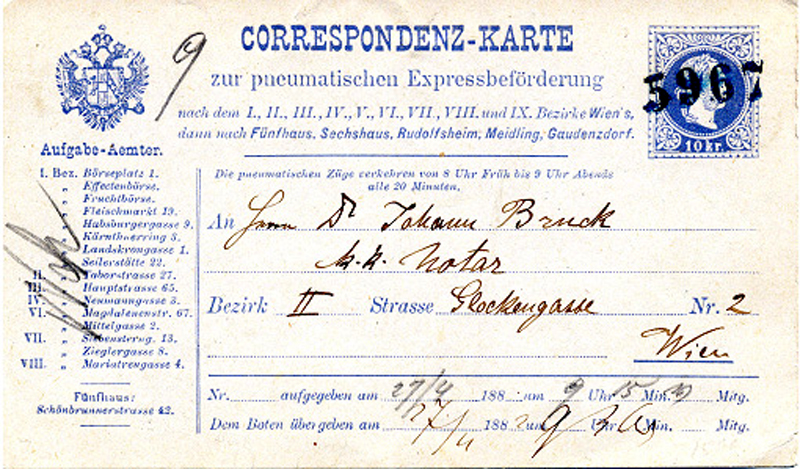 9
CORRESPONDENZ-KARTE
zur pneumatischen Expressbeförderung
nach dem I., II., III., IV., V., VI., VII., VIII. und IX. Bezirke Wien's,
dann nach Fünfhaus, Sechshaus, Rudolfsheim, Meidling, Gaudenzdorf.
5967
10 kr.
Aufgabe-Aemter.
I. Bez. Börseplatz 1.
„ Effectenbörse.
„ Fruchtbörse.
„ Fleischmarkt 19.
„ Habsburgergasse 9.
„ Kärnthnerring 3.
„ Landskrongasse 1.
„ Seilerstätte 22.
II. „ Taborstrasse 27.
III. „ Hauptstrasse 65.
IV. „ Neumanngasse 3.
VI. „ Magdalenenstr. 67.
„ Mittelgasse 2.
VII. „ Siebensterng. 13.
„ Zieglergasse 8.
VIII. „ Mariatreugasse 4.
Fünfhaus:
Schönbrunnerstrasse 42.
Die pneumatischen Züge verkehren von 8 Uhr Früh bis 9 Uhr Abends
alle 20 Minuten.
An Herrn Dr Johann Bruck
k. k. Notar
Bezirk II Strasse Glockengasse Nr. 2
Wien
Nr. aufgegeben am 27/4 188 um 9 Uhr 15 Min. Mitg.
Dem Boten übergeben am 27/4 188 um 9 Uhr Min. Mitg.